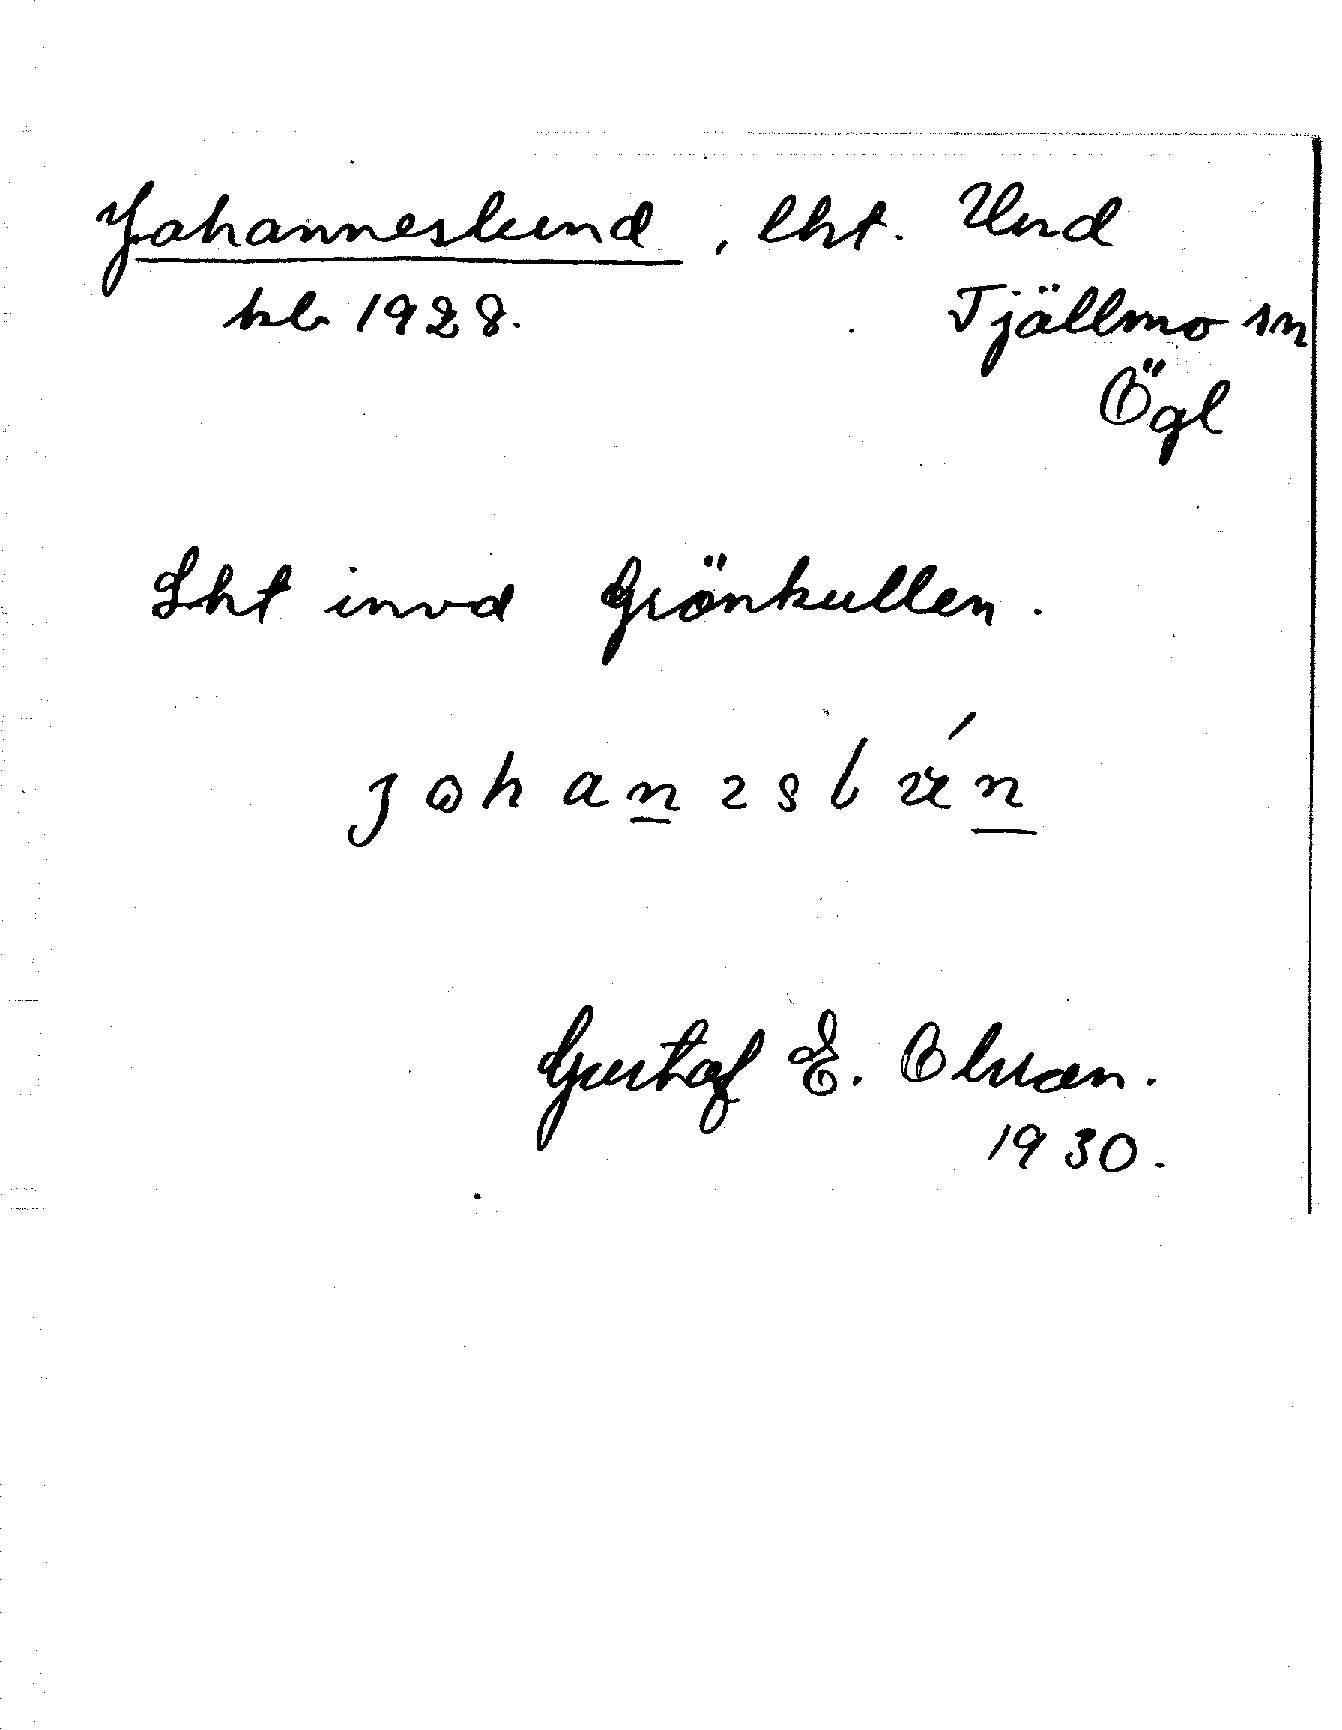 Johanneslund, lht. Und
kb 1928. Tjällmo sn
Ögl
Lht invd Grönkullen.
johanəslún
Gustaf E. Olsson.
1930.